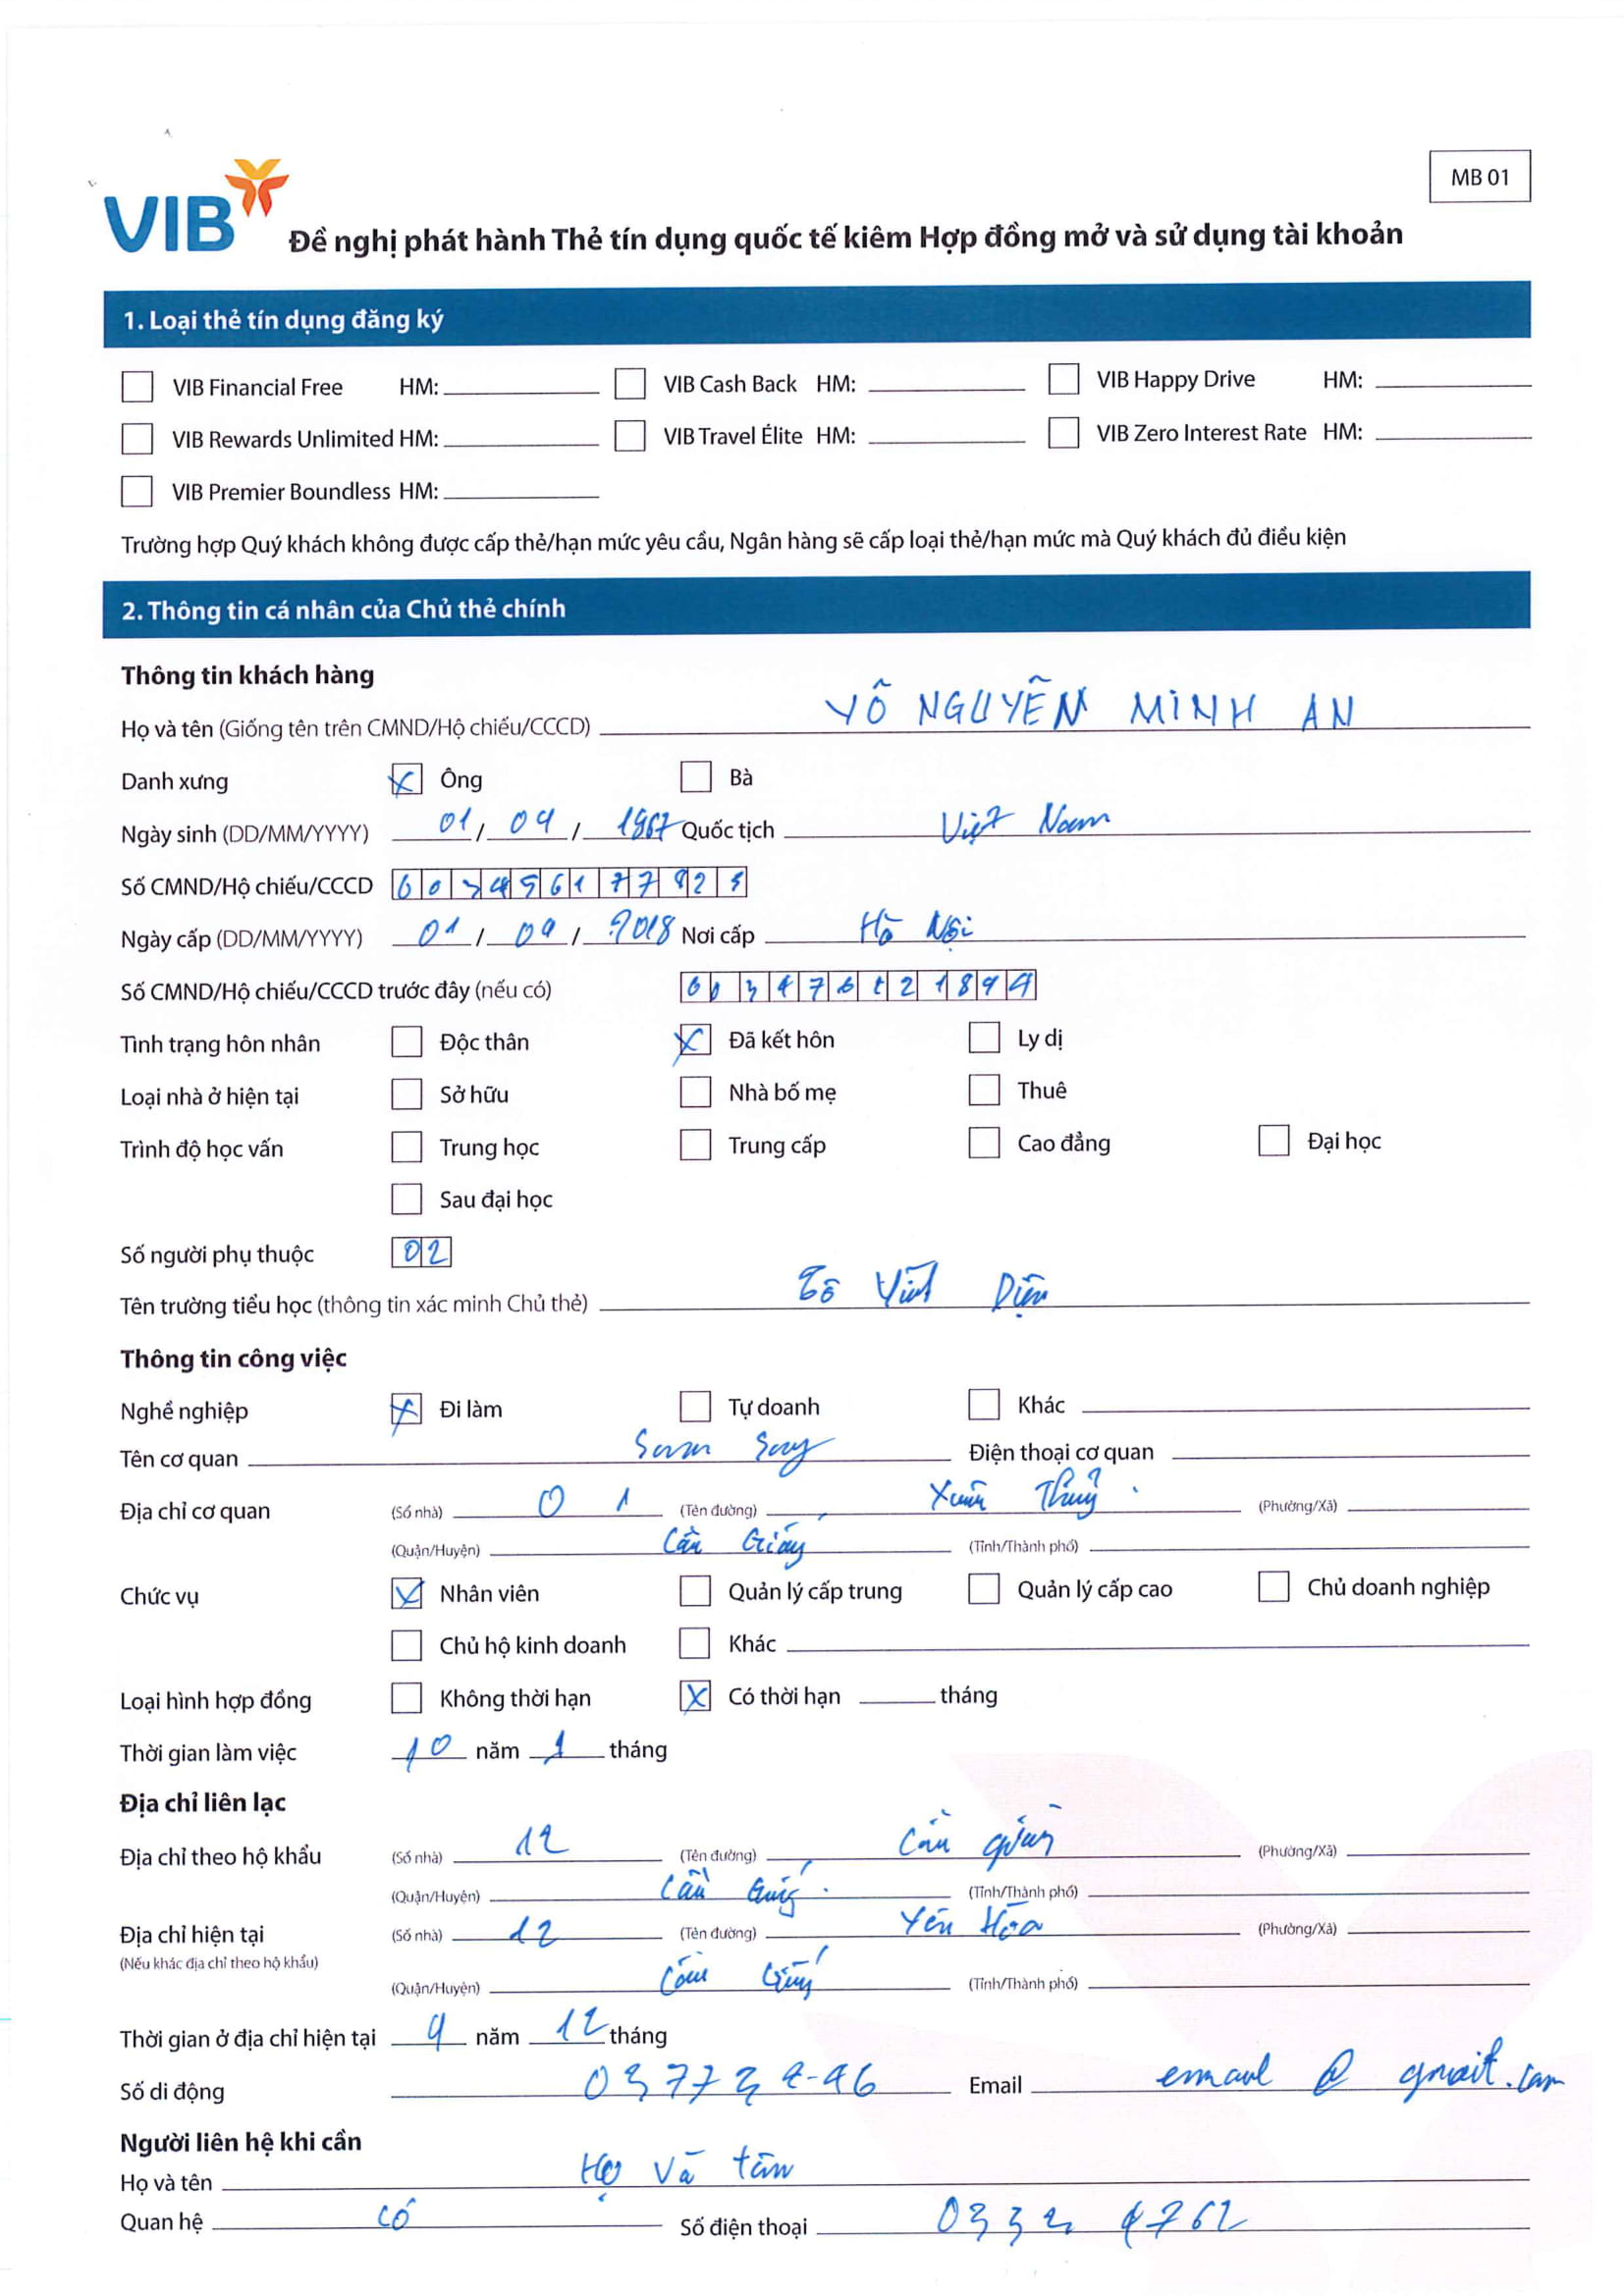 MB 01
VIB
Đề nghị phát hành Thẻ tín dụng quốc tế kiêm Hợp đồng mở và sử dụng tài khoản
1. Loại thẻ tín dụng đăng ký
VIB Financial Free HM: VIB Cash Back HM: VIB Happy Drive HM:
VIB Rewards Unlimited HM: VIB Travel Élite HM: VIB Zero Interest Rate HM:
VIB Premier Boundless HM:
Trường hợp Quý khách không được cấp thẻ/hạn mức yêu cầu, Ngân hàng sẽ cấp loại thẻ/hạn mức mà Quý khách đủ điều kiện
2. Thông tin cá nhân của Chủ thẻ chính
Thông tin khách hàng
Họ và tên (Giống tên trên CMND/Hộ chiếu/CCCD) VÕ NGUYỄN MINH AN
Danh xưng Ông Bà
Ngày sinh (DD/MM/YYYY) 01 / 04 / 1967 Quốc tịch Việt Nam
Số CMND/Hộ chiếu/CCCD
Ngày cấp (DD/MM/YYYY) 01 / 04 / 2018 Nơi cấp Hà Nội
Số CMND/Hộ chiếu/CCCD trước đây (nếu có)
Tình trạng hôn nhân Độc thân Đã kết hôn Ly dị
Loại nhà ở hiện tại Sở hữu Nhà bố mẹ Thuê
Trình độ học vấn Trung học Trung cấp Cao đẳng Đại học
Sau đại học
Số người phụ thuộc 02
Tên trường tiểu học (thông tin xác minh Chủ thẻ) Tô Vĩnh Diện
Thông tin công việc
Nghề nghiệp Đi làm Tự doanh Khác
Tên cơ quan Điện thoại cơ quan
Địa chỉ cơ quan (Số nhà) 01 (Tên đường) Xuân Thuỷ (Phường/Xã)
(Quận/Huyện) Cầu Giấy (Tỉnh/Thành phố)
Chức vụ Nhân viên Quản lý cấp trung Quản lý cấp cao Chủ doanh nghiệp
Chủ hộ kinh doanh Khác
Loại hình hợp đồng Không thời hạn Có thời hạn tháng
Thời gian làm việc 10 năm 1 tháng
Địa chỉ liên lạc
Địa chỉ theo hộ khẩu (Số nhà) 12 (Tên đường) Cầu giấy (Phường/Xã)
(Quận/Huyện) Cầu Giấy (Tỉnh/Thành phố)
Địa chỉ hiện tại (Số nhà) 12 (Tên đường) Yên Hòa (Phường/Xã)
(Nếu khác địa chỉ theo hộ khẩu)
(Quận/Huyện) Cầu Giấy (Tỉnh/Thành phố)
Thời gian ở địa chỉ hiện tại 9 năm 12 tháng
Số di động Email email @ gmail.com
Người liên hệ khi cần
Họ và tên Họ và tên
Quan hệ có Số điện thoại